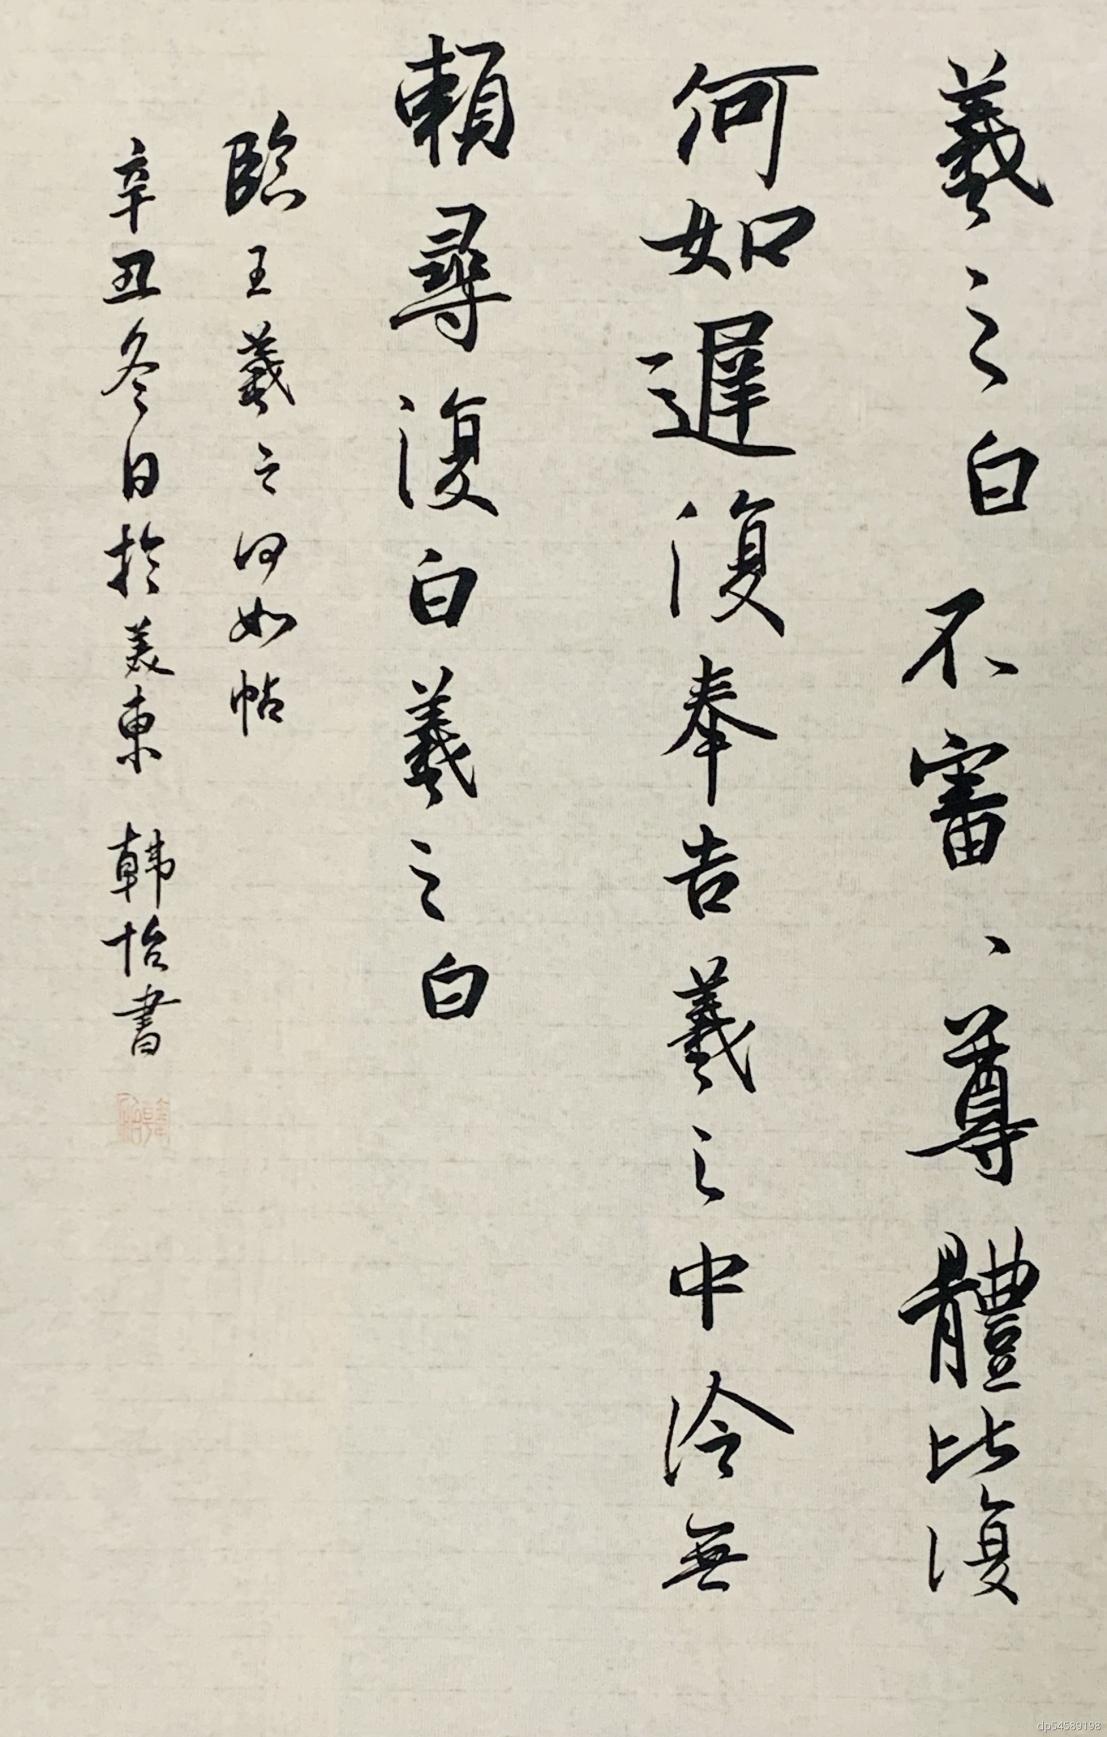 羲之白不審、尊體比復
何如遲復奉告羲之中冷無
賴尋復白羲之白
臨王羲之何如帖
辛丑冬日於美東 韩怡書
dp54589198